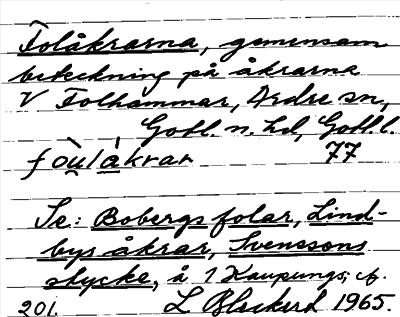 Folåkrarna, gemensam
beteckning på åkrarna
V Folhammar, Ardre sn,
Gotl. n. hd, Gotl. l.
fòu̯lákrar 77
Se: Bobergs folar, Lind-
bys åkrar, Svenssons
stycke, å 1 Kaupungs;
201. L 1965.